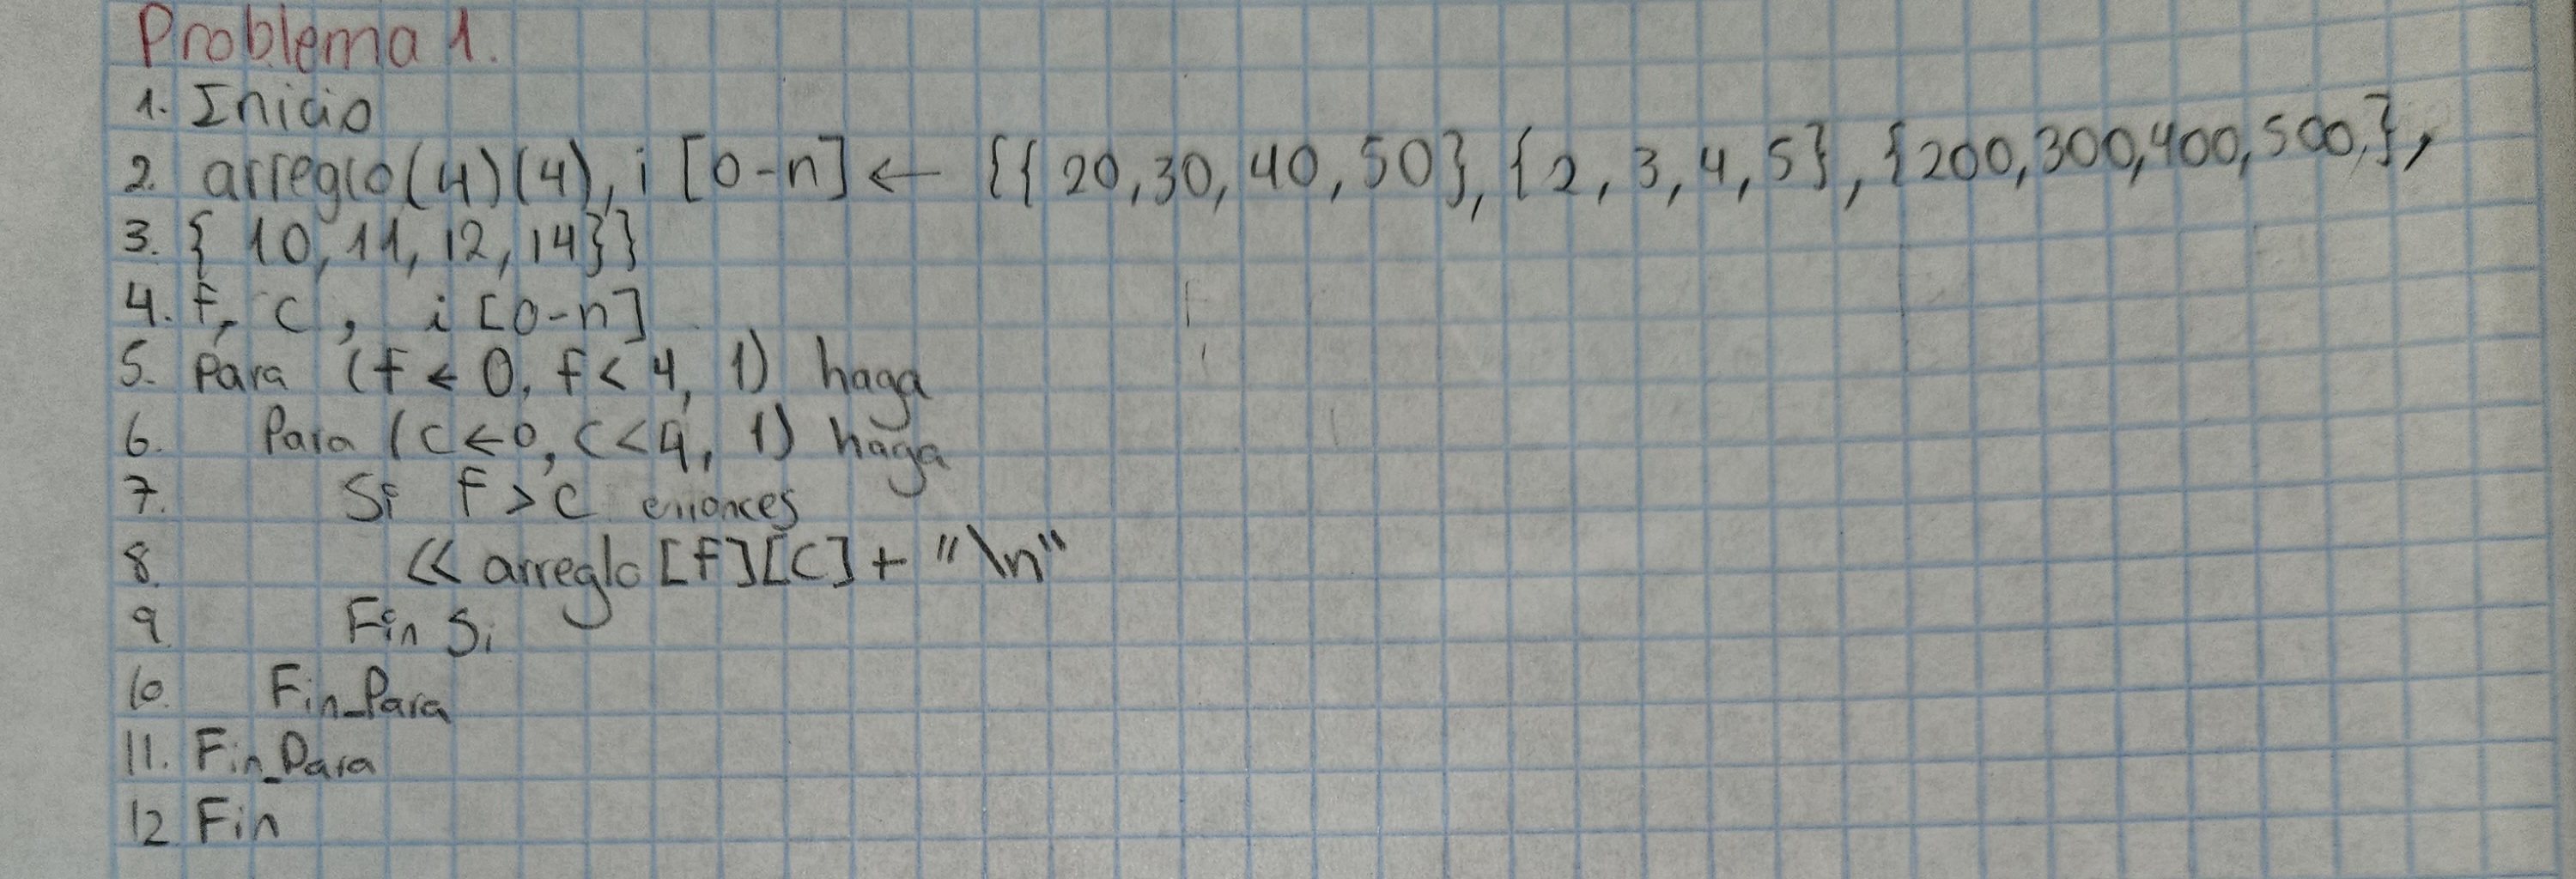 Problema 1.
1. Inicio
2. arreglo(4)(4), i [0-n] ← {{20,30,40,50},{2,3,4,5},{200,300,400,500,},
3. {10,11,12,14}}
4. f, c, i [0-n]
5. Para (f ← 0, f < 4, 1) haga
6. Para (c ← 0, c < 4, 1) haga
7. Si f > c entonces
8. << arreglo[f][c] + "\n"
9. Fin Si
10. Fin_Para
11. Fin_Para
12 Fin